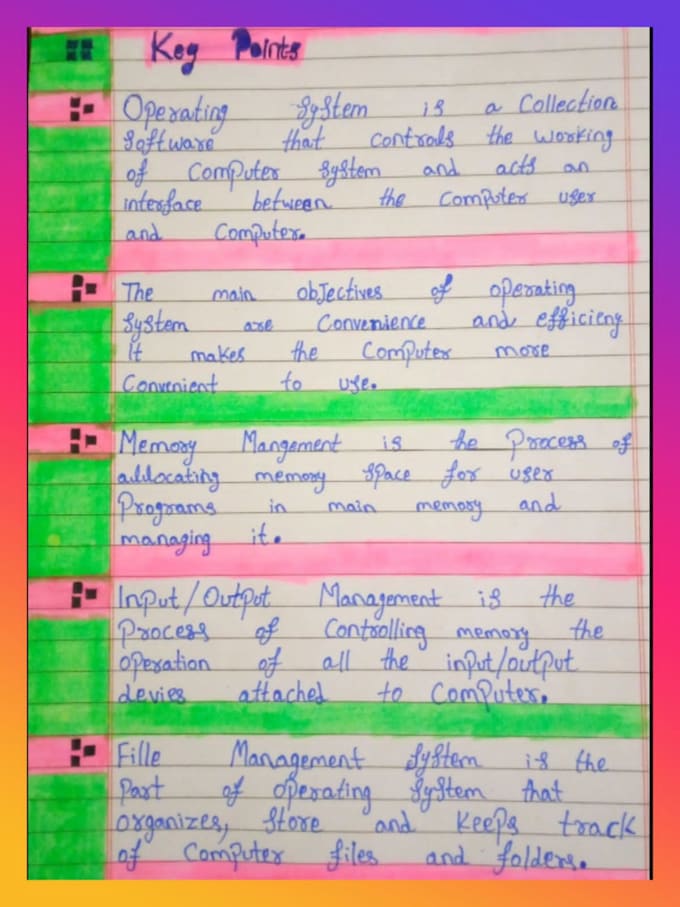 Key Points
Operating System is a Collection
Software that controls the working
of Computer System and acts an
interface between the Computer user
and Computer.
The main objectives of operating
System are Convenience and efficieny
It makes the Computer more
Convenient to use.
Memory Mangement is the Process of
alllocating memory Space for user
Programs in main memory and
managing it.
Input/Output Management is the
Process of Controlling memory the
Operation of all the input/output
devies attached to Computer.
Fille Management System is the
Part of operating System that
organizes, Store and Keeps track
of Computer files and folders.